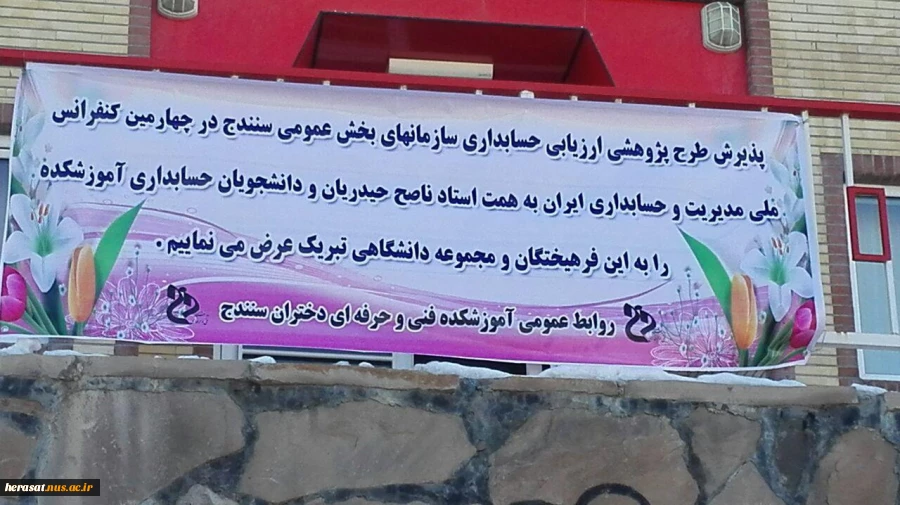 پذیرش طرح پژوهشی ارزیابی حسابداری سازمانهای بخش عمومی سنندج در چهارمین کنفرانس
ملی مدیریت و حسابداری ایران به همت استاد ناصح حیدریان و دانشجویان حسابداری آموزشکده
را به این فرهیختگان و مجموعه دانشگاهی تبریک عرض می نماییم .
روابط عمومی آموزشکده فنی و حرفه ای دختران سنندج
herasat.nus.ac.ir